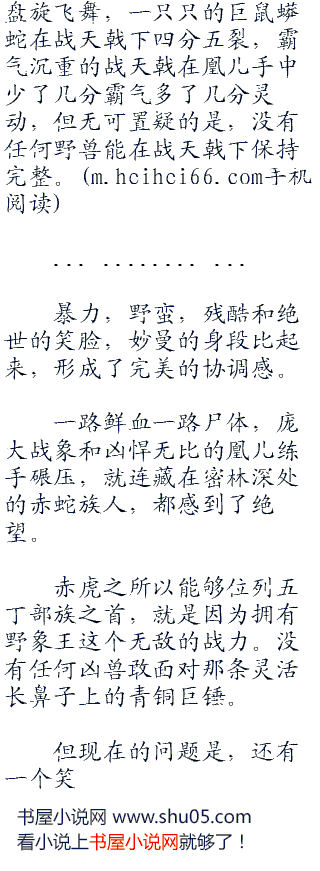 盘旋飞舞，一只只的巨鼠蟒
蛇在战天戟下四分五裂，霸
气沉重的战天戟在凰儿手中
少了几分霸气多了几分灵
动，但无可置疑的是，没有
任何野兽能在战天戟下保持
完整。(m.hcihci66.com手机
阅读)
... ........ ...
暴力，野蛮，残酷和绝
世的笑脸，妙曼的身段比起
来，形成了完美的协调感。
一路鲜血一路尸体，庞
大战象和凶悍无比的凰儿练
手碾压，就连藏在密林深处
的赤蛇族人，都感到了绝
望。
赤虎之所以能够位列五
丁部族之首，就是因为拥有
野象王这个无敌的战力。没
有任何凶兽敢面对那条灵活
长鼻子上的青铜巨锤。
但现在的问题是，还有
一个笑
书屋小说网 www.shu05.com
看小说上书屋小说网就够了！